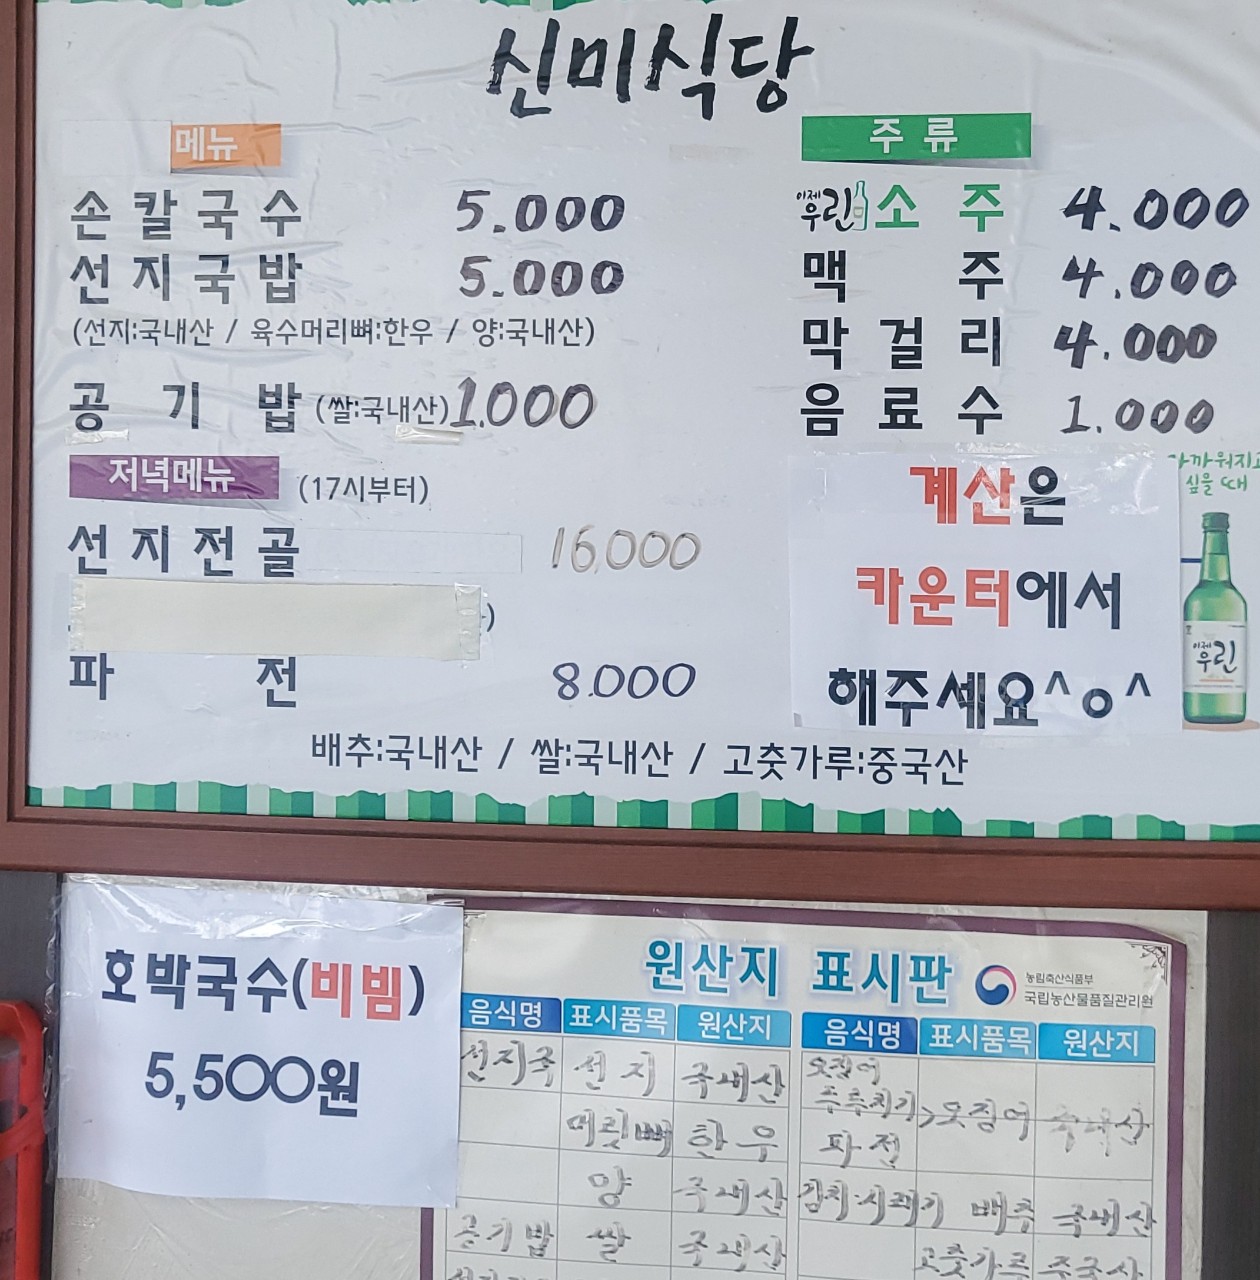 신미식당
메뉴
손칼국수 5.000
선지국밥 5.000
(선지:국내산 / 육수머리뼈:한우 / 양:국내산)
공기밥 (쌀:국내산) 1.000
저녁메뉴 (17시부터)
선지전골 16,000
파전 8.000
주류
이제 우린 소주 4.000
맥주 4.000
막걸리 4.000
음료수 1.000
계산은
카운터에서
해주세요^o^
싶을 때
이제
우린
배추:국내산 / 쌀:국내산 / 고춧가루:중국산
호박국수(비빔)
5,500원
원산지 표시판
농림축산식품부
국립농산물품질관리원
음식명 표시품목 원산지 음식명 표시품목 원산지
선지국 선지 국내산
머릿뼈 한우
양 국내산
공기밥 쌀 국내산
오징어
두루치기 > 오징어 국내산
파전
김치·시래기 배추 국내산
고춧가루 중국산